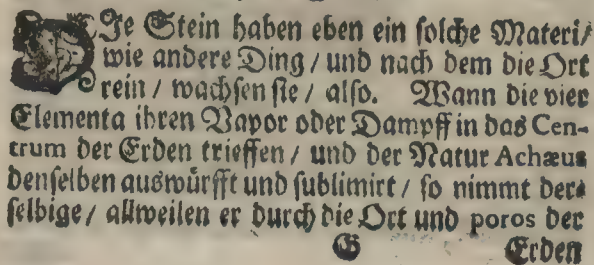 DJe Stein haben eben ein solche Materi/
wie andere Ding / und nach dem die Ort
rein / wachsen sie / also. Wann die vier
Elementa ihren Vapor oder Dampff in das Cen-
trum der Erden trieffen / und der Natur Achæus
denselben auswürfft und sublimirt / so nimmt der-
selbige / allweilen er durch die Ort und poros der
G Erden